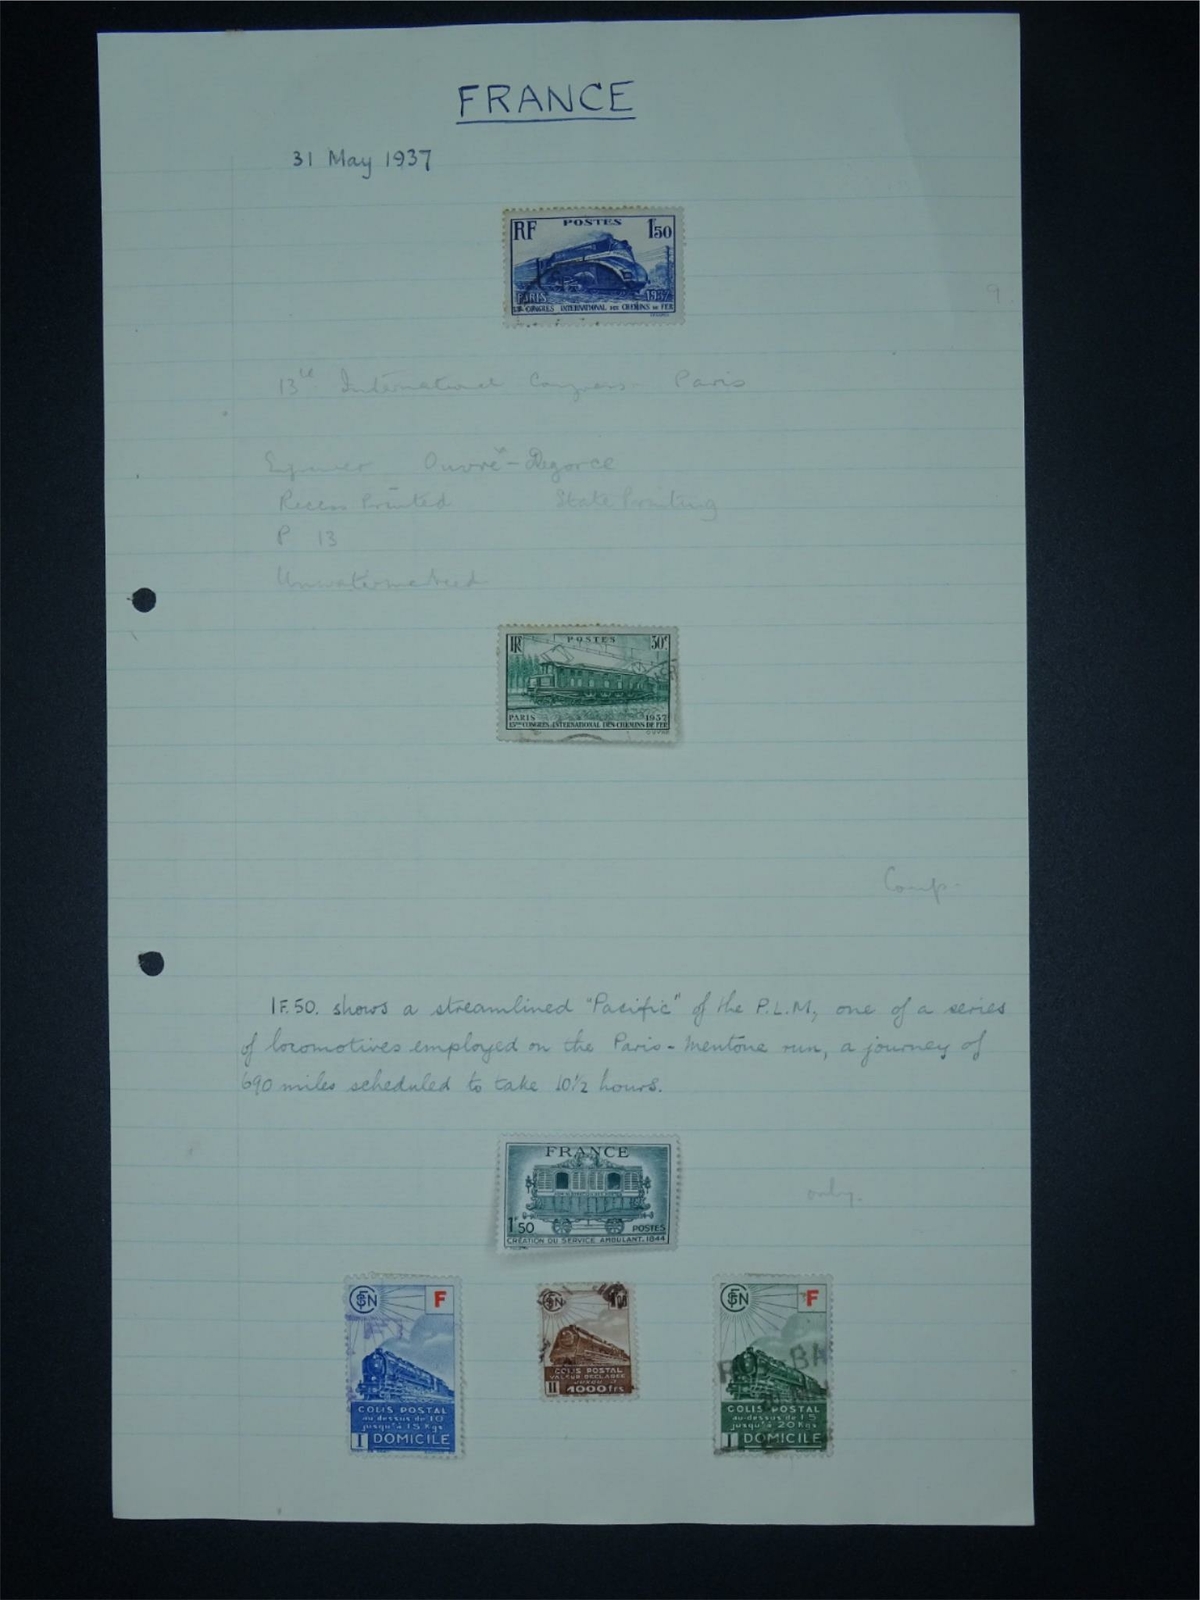 FRANCE
31 May 1937
POSTES
RF 1F50
PARIS 1937
13e CONGRES INTERNATIONAL DES CHEMINS DE FER
9.
13th International Congress Paris
Ouvré - Degorce
Recess Printed State Printing
P 13
Unwatermarked
RF POSTES 30c
PARIS 1937
13me CONGRES INTERNATIONAL DES CHEMINS DE FER
Comp.
1F.50. shows a streamlined "Pacific" of the P.L.M, one of a series
of locomotives employed on the Paris - Mentone run, a journey of
690 miles scheduled to take 10½ hours.
FRANCE
only.
1F50 POSTES
CRÉATION DU SERVICE AMBULANT. 1844
SNCF F
COLIS POSTAL
au-dessus de 10
jusqu'à 15 Kgs
I DOMICILE
SNCF
COLIS POSTAL
VALEUR DÉCLARÉE
JUSQU'À
II 1000 frs
SNCF F
COLIS POSTAL
au-dessus de 15
jusqu'à 20 Kgs
I DOMICILE